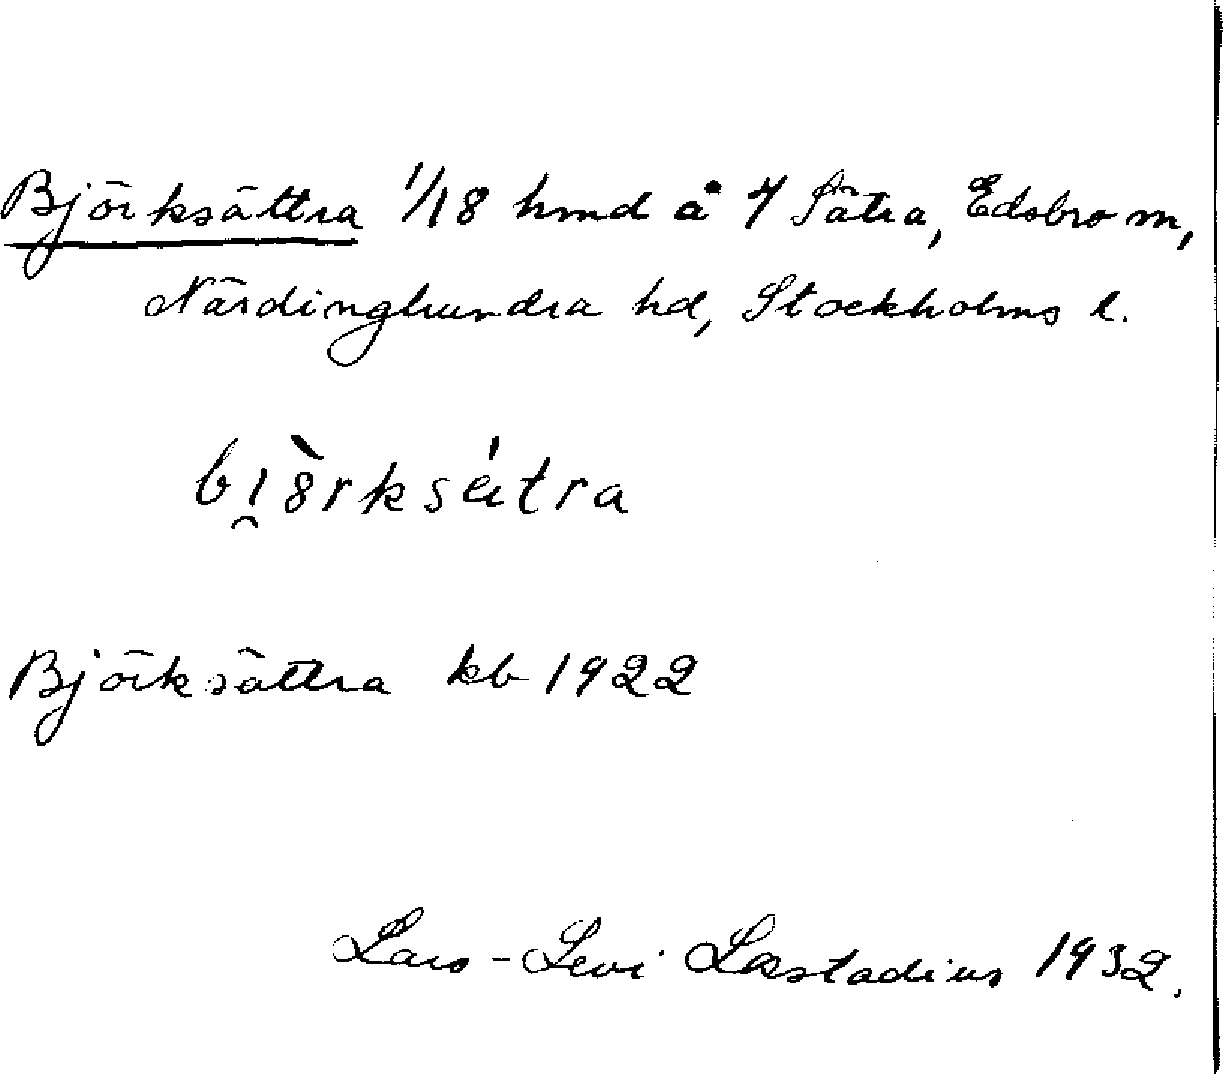 Björksättra 1/18 hmd å 7 Sätra, Edsbro sn,
Närdinghundra hd, Stockholms l.
bı̯ὸ̈rksätra
Björksättra kb 1922
Lars-Levi Læstadius 1932.